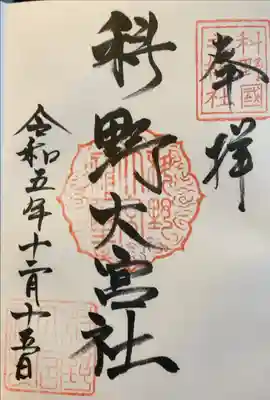 奉拝
科野國
科野大宮社
令和五年十二月十五日